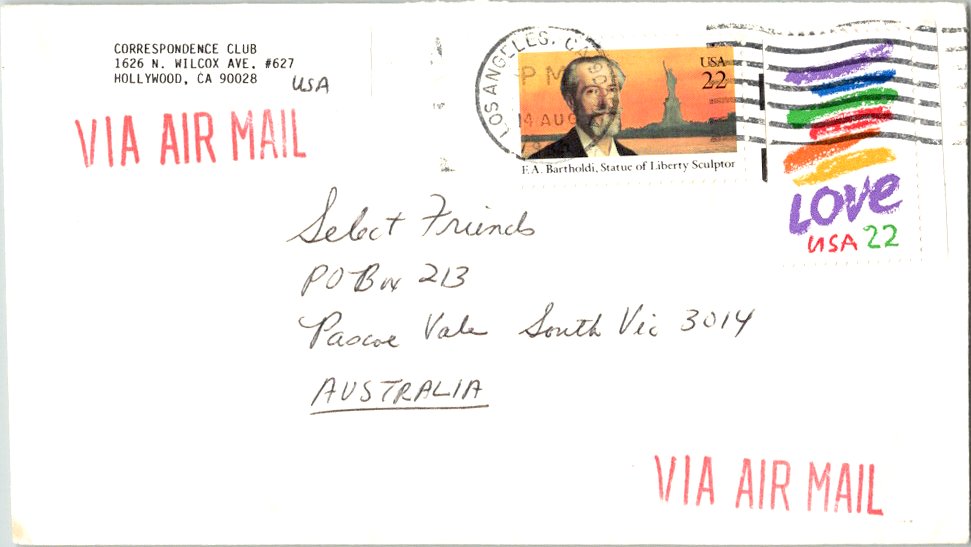 CORRESPONDENCE CLUB
1626 N. WILCOX AVE. #627
HOLLYWOOD, CA 90028
USA
VIA AIR MAIL
LOS ANGELES, CA
PM
14 AUG
USA
22
F.A. Bartholdi, Statue of Liberty Sculptor
LOVE
USA 22
Select Friends
PO Box 213
Pascoe Vale South Vic 3014
AUSTRALIA
VIA AIR MAIL